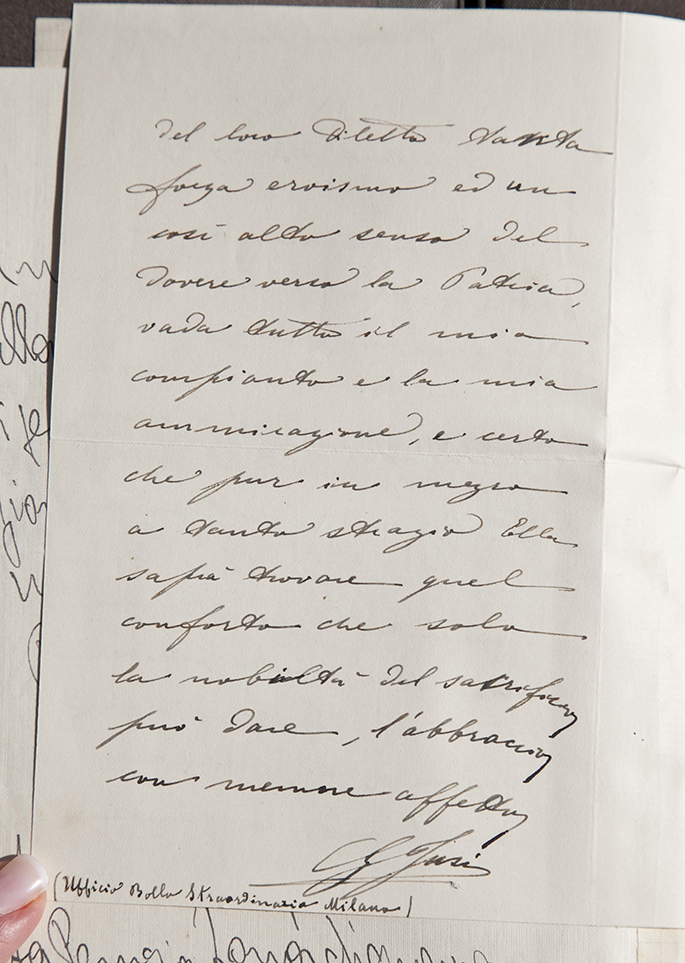 del loro diletto tanta
forza eroismo ed un
così alto senso del
dovere verso la Patria,
vada tutto il mio
compianto e la mia
ammirazione, e certo
che pur in mezzo
a tanto strazio Ella
saprà trovare quel
conforto che solo
la nobiltà del sacrificio
può dare, l'abbraccio
con memore affetto
(Ufficio Bollo Straordinario Milano)